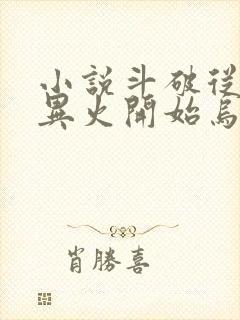 小說斗破從
異火開始焉
肖勝喜